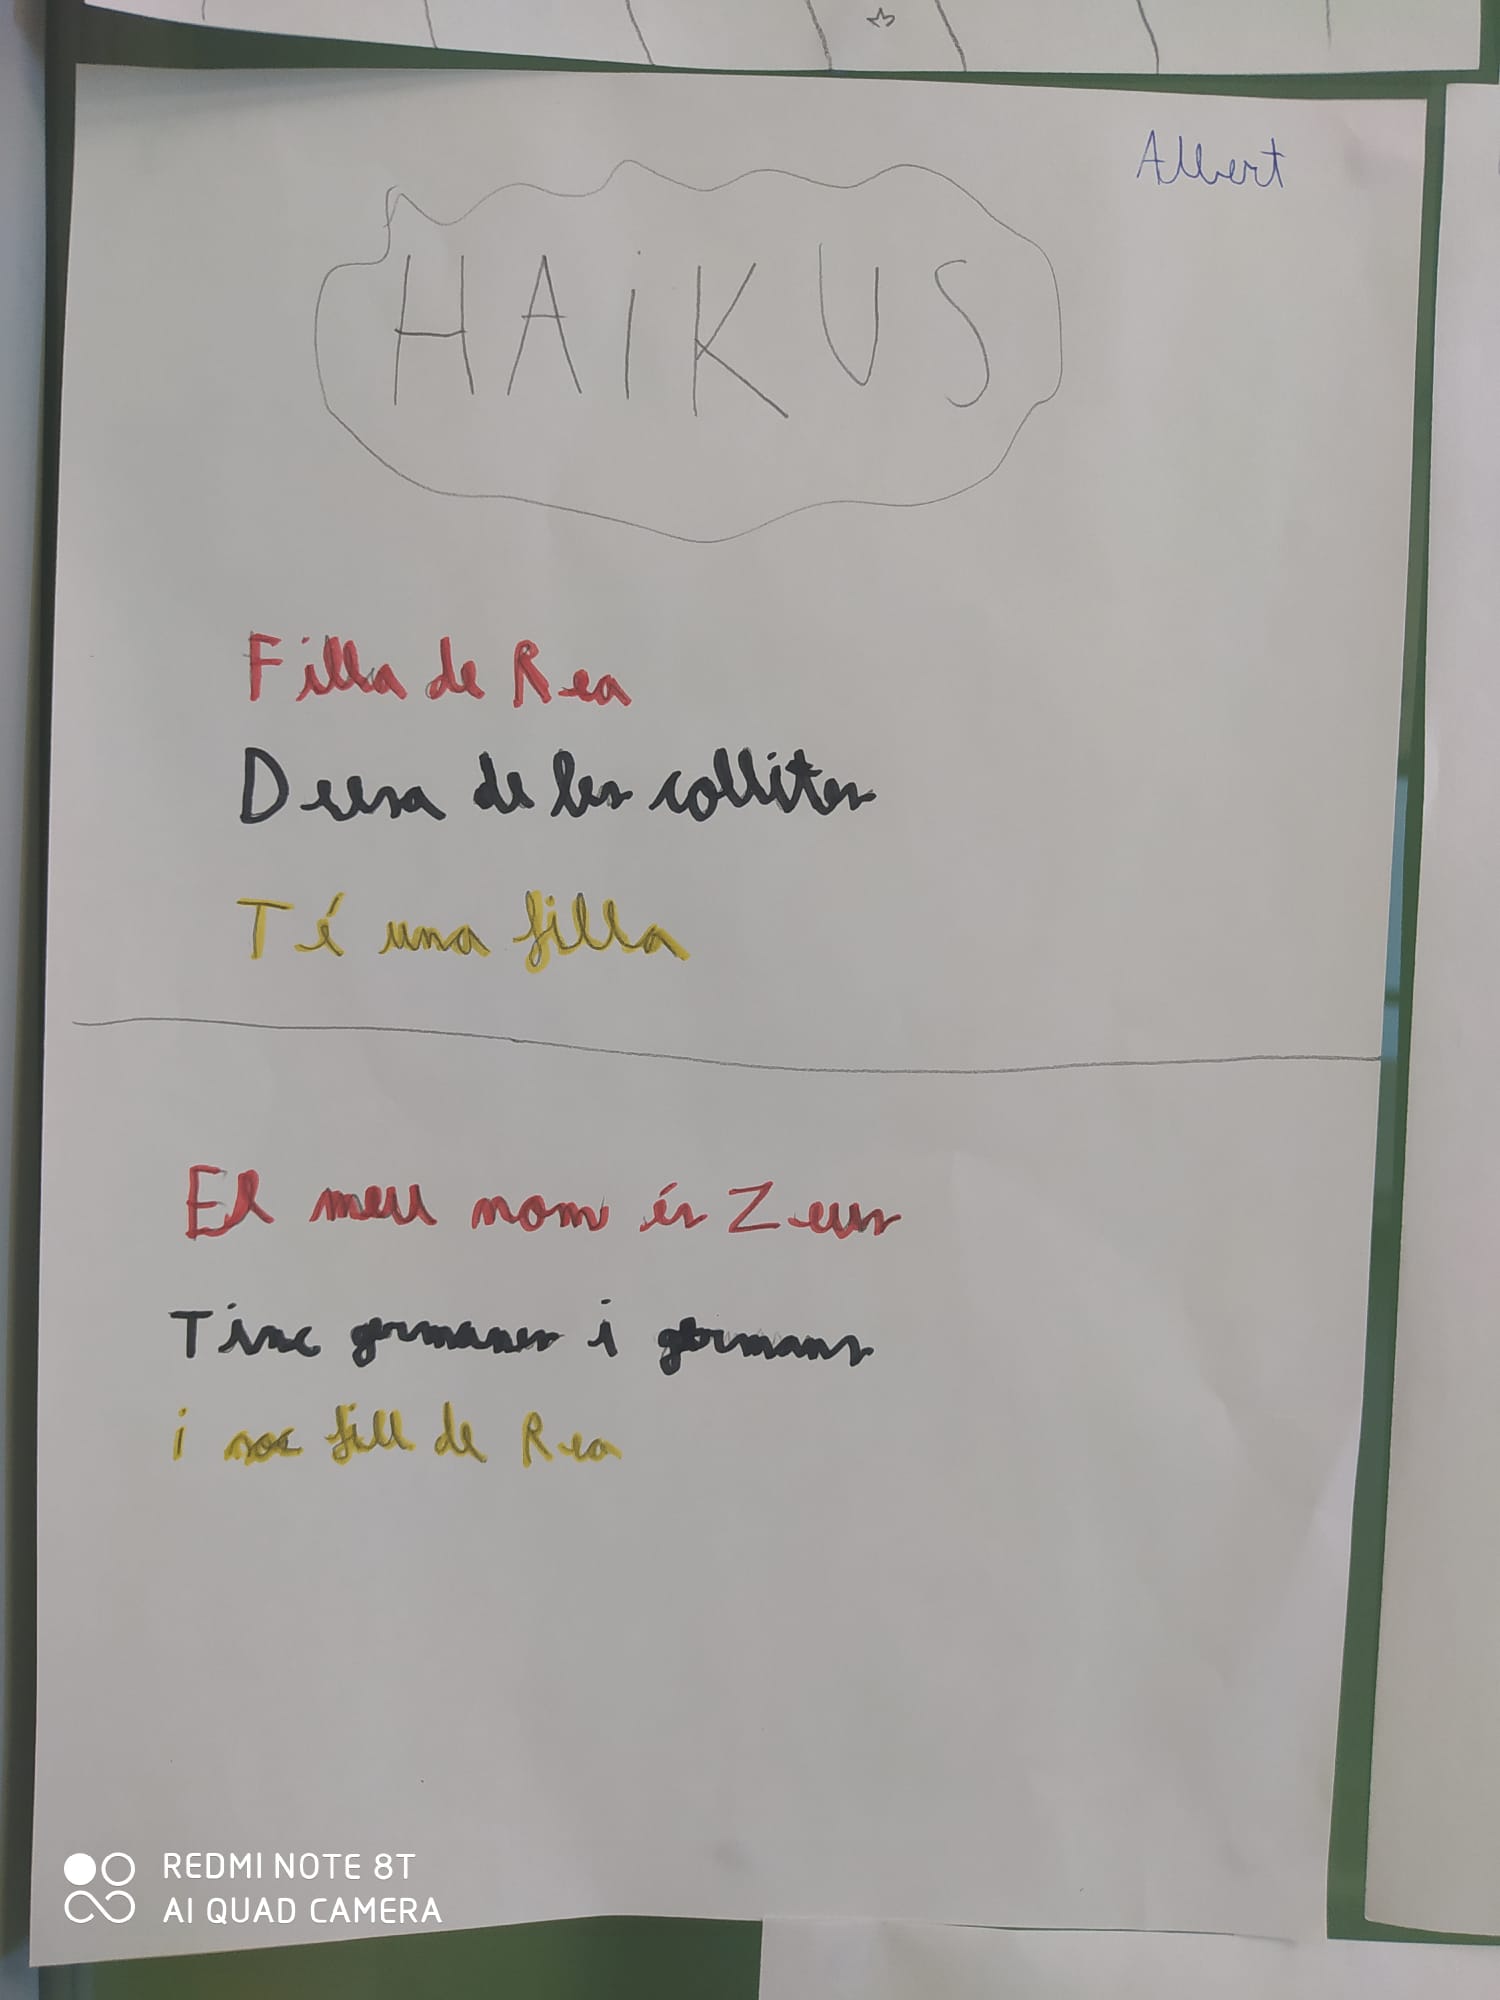 Albert
HAiKUS
Filla de Rea
Deesa de les collites
Té una filla
El meu nom és Zeus
Tinc germanes i germans
i soc fill de Rea
REDMI NOTE 8T
AI QUAD CAMERA